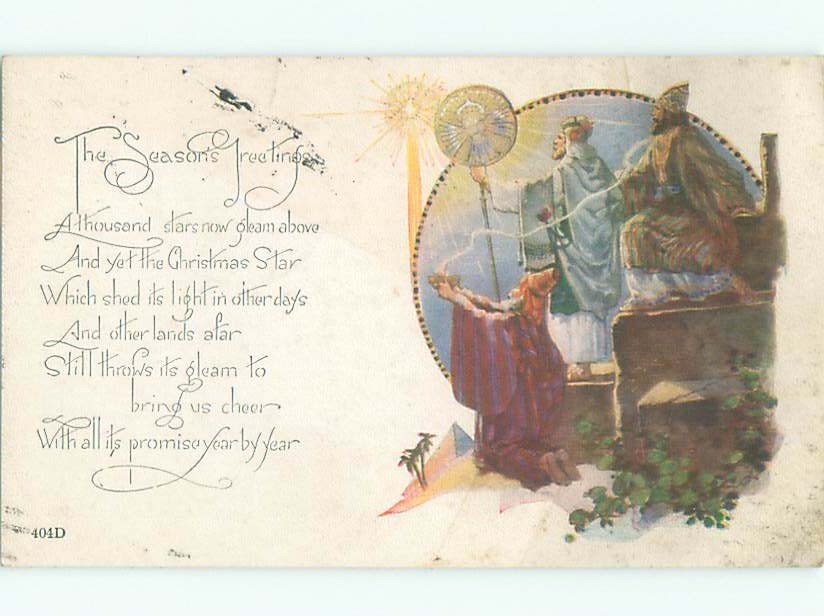 The Season's Greetings
A thousand stars now gleam above
And yet the Christmas Star
Which shed its light in other days
And other lands afar
Still throws its gleam to
bring us cheer
With all its promise year by year
404D